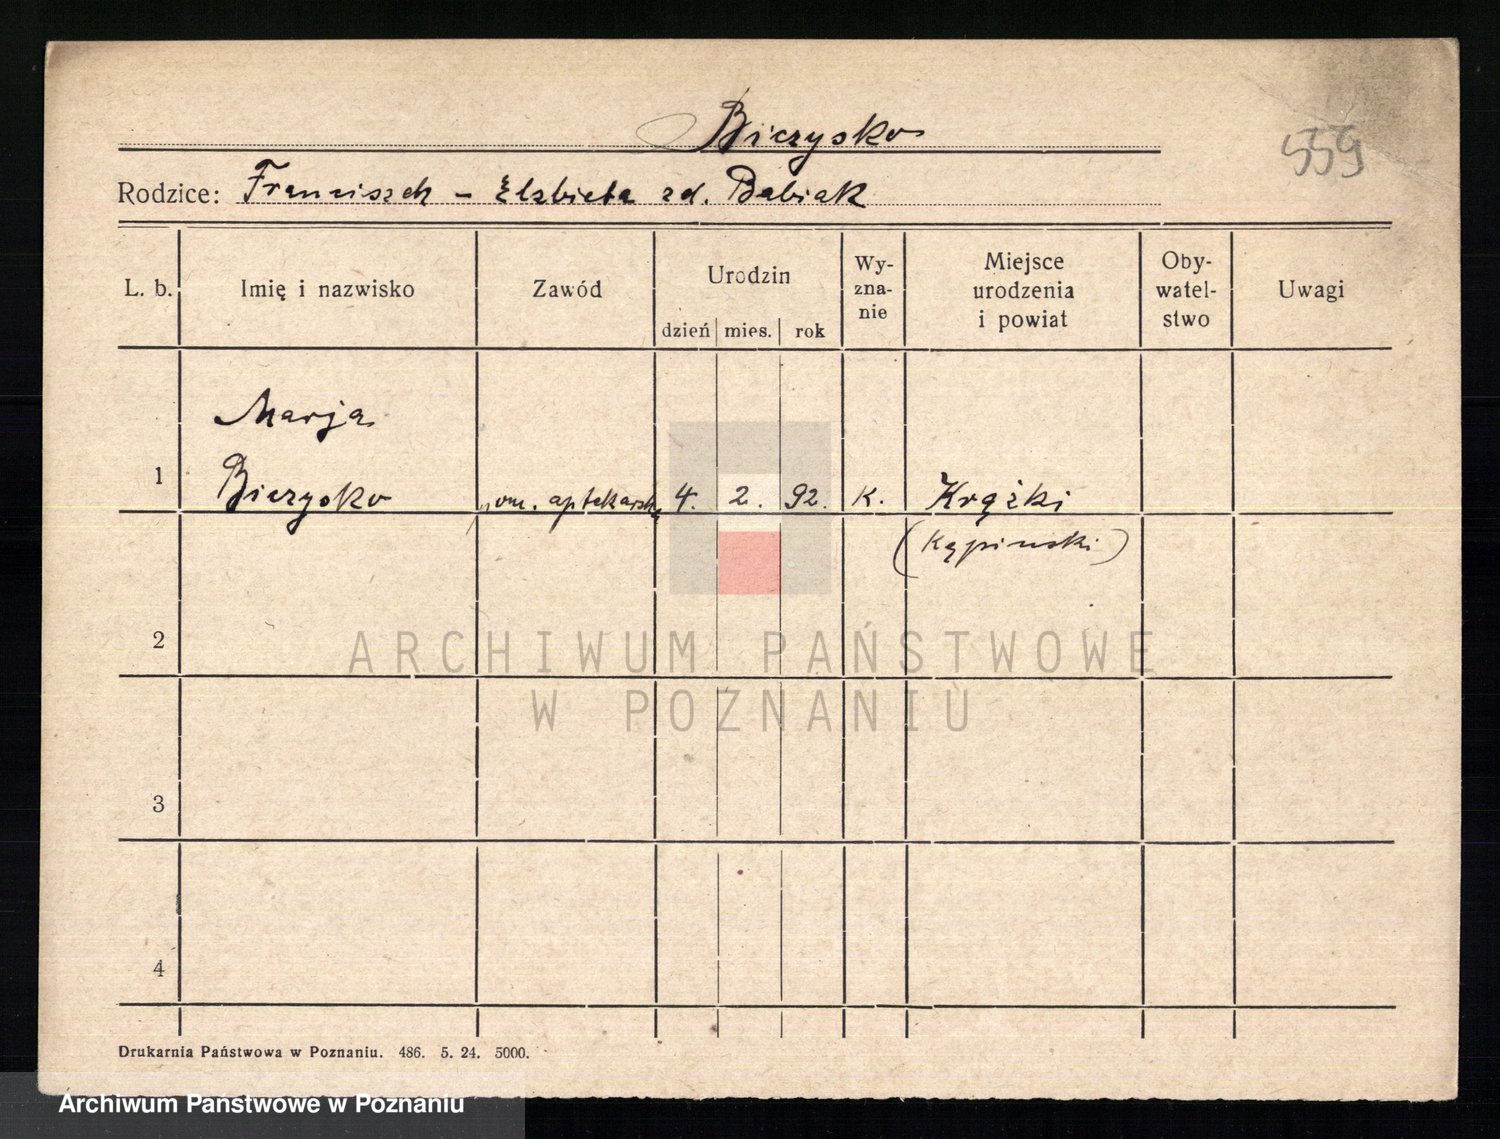 Bierzysko
559
Rodzice: Franciszek – Elżbieta zd. Babiak
L. b.
Imię i nazwisko
Zawód
Urodzin
dzień
mies.
rok
Wy-
zna-
nie
Miejsce
urodzenia
i powiat
Oby-
watel-
stwo
Uwagi
Marja
1 Bierzysko pom. aptekarska 4. 2. 92. K. Krążki
(Kępiński)
2
3
4
ARCHIWUM PAŃSTWOWE
W POZNANIU
Drukarnia Państwowa w Poznaniu. 486. 5. 24. 5000.
Archiwum Państwowe w Poznaniu